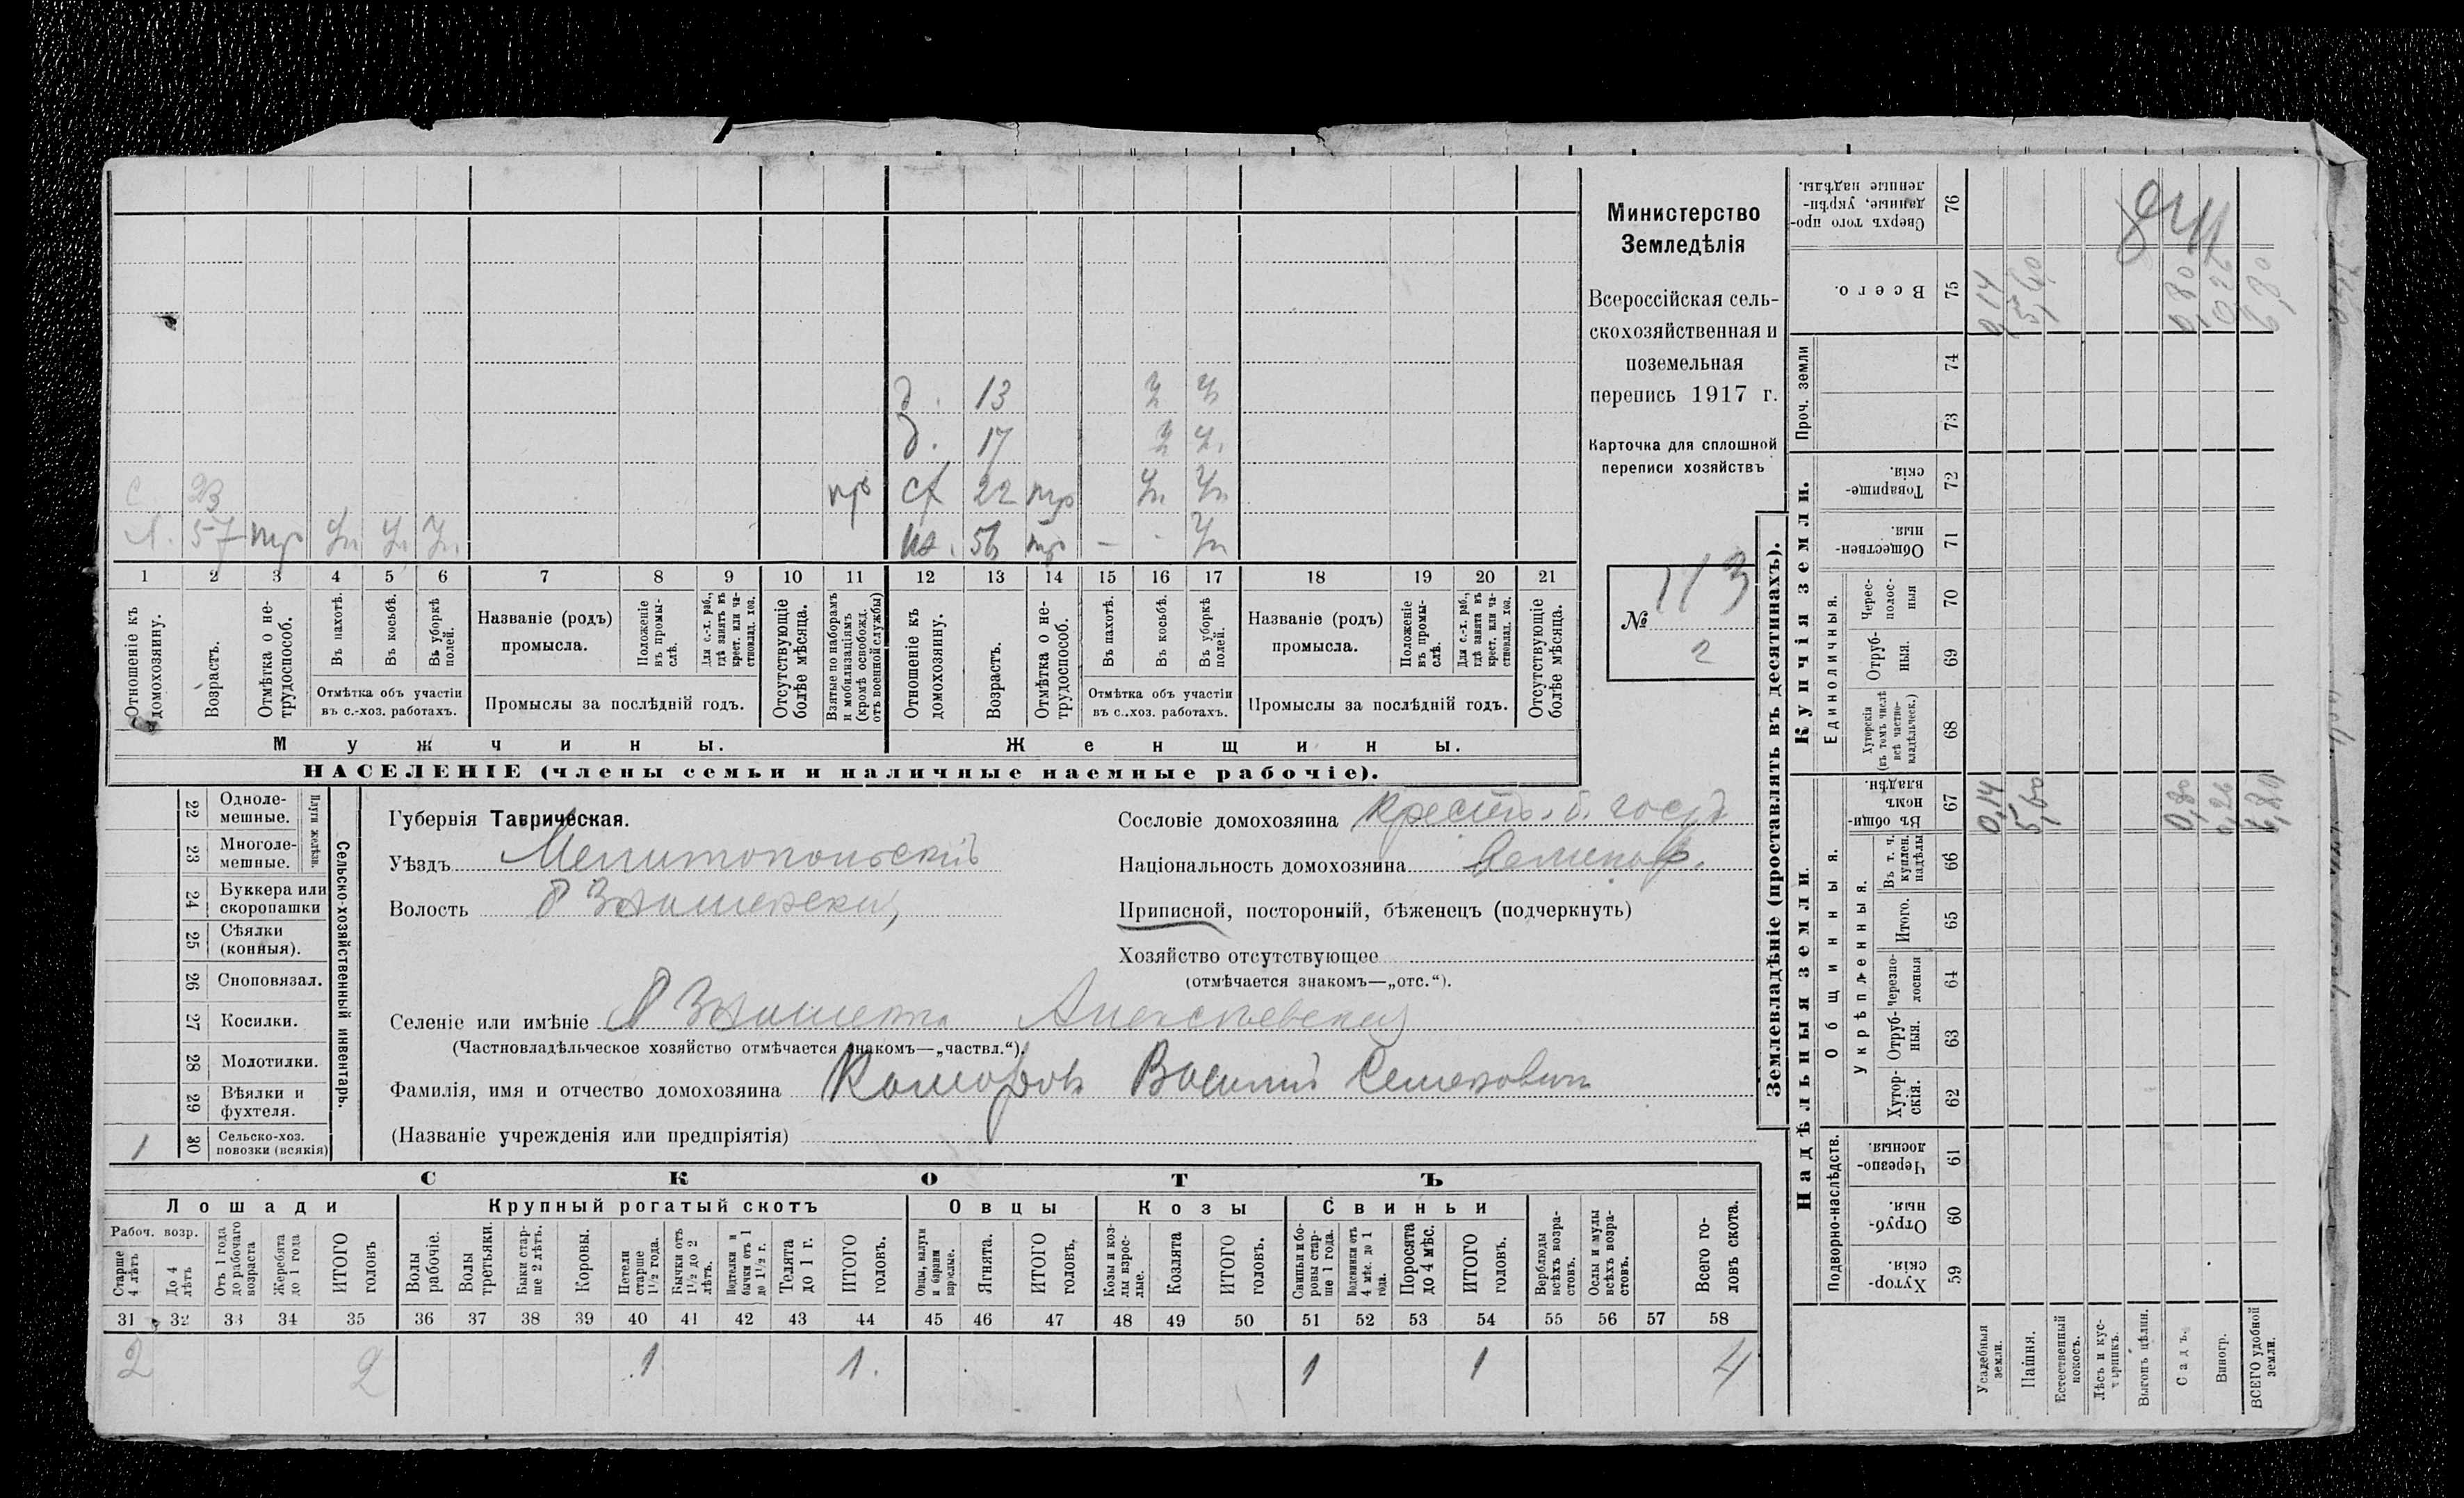 Министерство
Земледѣлія
Всероссійская сель-
скохозяйственная и
поземельная
перепись 1917 г.
Карточка для сплошной
переписи хозяйствъ
№ 113
2
д. 13 
д. 17
с 23 пр 22
57 56
1 2 3 4 5 6 7 8 9 10 11 12 13 14 15 16 17 18 19 20 21
Отношеніе къ домохозяину.
Возрастъ.
Отмѣтка о не-трудоспособ.
Въ пахотѣ.
Въ косьбѣ.
Въ уборкѣ полей.
Отмѣтка объ участіи
въ с.-хоз. работахъ.
Названіе (родъ)
промысла.
Положеніе въ промы-слѣ.
Для с.-х. раб., гдѣ занятъ въ крест. или ча-стновлад. хоз.
Промыслы за послѣдній годъ.
Отсутствующіе болѣе мѣсяца.
Взятые по наборамъ и мобилизаціямъ (кромѣ освобожд. отъ военной службы)
Отношеніе къ домохозяину.
Возрастъ.
Отмѣтка о не-трудоспособ.
Въ пахотѣ.
Въ косьбѣ.
Въ уборкѣ полей.
Отмѣтка объ участіи
въ с.-хоз. работахъ.
Названіе (родъ)
промысла.
Положеніе въ промы-слѣ.
Для с.-х. раб., гдѣ занята въ крест. или ча-стновлад. хоз.
Промыслы за послѣдній годъ.
Отсутствующіе болѣе мѣсяца.
Мужчины.
Женщины.
НАСЕЛЕНІЕ (члены семьи и наличные наемные рабочіе).
Сельско-хозяйственный инвентарь.
Плуги желѣзн.
22 Одноле-мешные.
23 Многоле-мешные.
24 Буккера или скоропашки
25 Сѣялки (конныя).
26 Сноповязал.
27 Косилки.
28 Молотилки.
29 Вѣялки и фухтеля.
1 30 Сельско-хоз. повозки (всякія)
Губернія Таврическая.
Уѣздъ Мелитопольскій
Волость
Сословіе домохозяина
Національность домохозяина
Приписной, посторонній, бѣженецъ (подчеркнуть)
Хозяйство отсутствующее
(отмѣчается знакомъ—„отс.“).
Селеніе или имѣніе Знаменка Алексѣевская
(Частновладѣльческое хозяйство отмѣчается знакомъ—„частвл.“).
Фамилія, имя и отчество домохозяина Комаровъ Василій Семеновичъ
(Названіе учрежденія или предпріятія)
СКОТЪ
Лошади
Крупный рогатый скотъ
Овцы
Козы
Свиньи
Рабоч. возр.
Старше 4 лѣтъ
До 4 лѣтъ
Отъ 1 года до рабочаго возраста
Жеребята до 1 года
ИТОГО головъ
Волы рабочіе.
Волы третьяки.
Быки стар-ше 2 лѣтъ.
Коровы.
Нетели старше 1½ года.
Бычки отъ 1½ до 2 лѣтъ.
Подтелки и бычки отъ 1 до 1½ г.
Телята до 1 г.
ИТОГО головъ.
Овцы, валухи и бараны взрослые.
Ягнята.
ИТОГО головъ.
Козы и коз-лы взрос-лые.
Козлята
ИТОГО головъ.
Свиньи и бо-ровы стар-ше 1 года.
Подсвинки отъ 4 мѣс. до 1 года.
Поросята до 4 мѣс.
ИТОГО головъ.
Верблюды всѣхъ возра-стовъ.
Ослы и мулы всѣхъ возра-стовъ.
Всего го-ловъ скота.
31 32 33 34 35 36 37 38 39 40 41 42 43 44 45 46 47 48 49 50 51 52 53 54 55 56 57 58
2 2 1 1. 1 1 4
Землевладѣніе (проставлять въ десятинахъ).
Надѣльныя земли.
Купчія земли.
Проч. земли
Сверхъ того про-данные, укрѣп-ленные надѣлы. 76
Всего. 75 0,14 5,60 0,80 0,26 6,80
74
73
Товарище-скія. 72
Обществен-ныя. 71
Единоличныя.
Черес-полос-ныя 70
Отруб-ныя. 69
Хуторскія (въ томъ числѣ всѣ частно-владѣльческ.) 68
Въ общин-номъ владѣн. 67 0,14 5,60 0,80 0,26 6,80
Общинныя.
Укрѣпленныя.
Въ т. ч. куплен. надѣлы 66
Итого. 65
Черезпо-лосныя 64
Отруб-ныя. 63
Хутор-скія. 62
Подворно-наслѣдств.
Черезпо-лосныя. 61
Отруб-ныя. 60
Хутор-скія. 59
Усадебныя земли.
Пашня.
Естественный покосъ.
Лѣсъ и кус-тарникъ.
Выгонъ цѣлин.
Садъ.
Виногр.
ВСЕГО удобной земли.